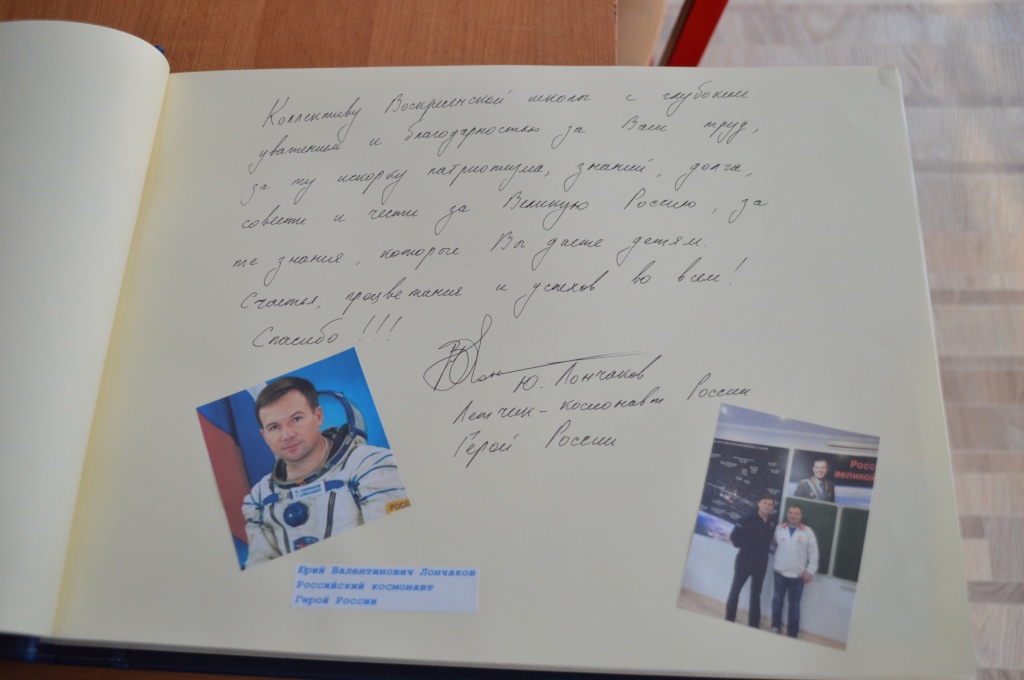 Коллективу Воскресенской школы с глубоким
уважением и благодарностью за Ваш труд,
за ту искорку патриотизма, знаний, долга,
совести и чести за Великую Россию, за
те знания, которые Вы даете детям.
Счастья, процветания и успехов во всем!
Спасибо!!!
Ю. Лончаков
Летчик-космонавт России
Герой России
РОСС
Росс
великой
Юрий Валентинович Лончаков
Российский космонавт
Герой России